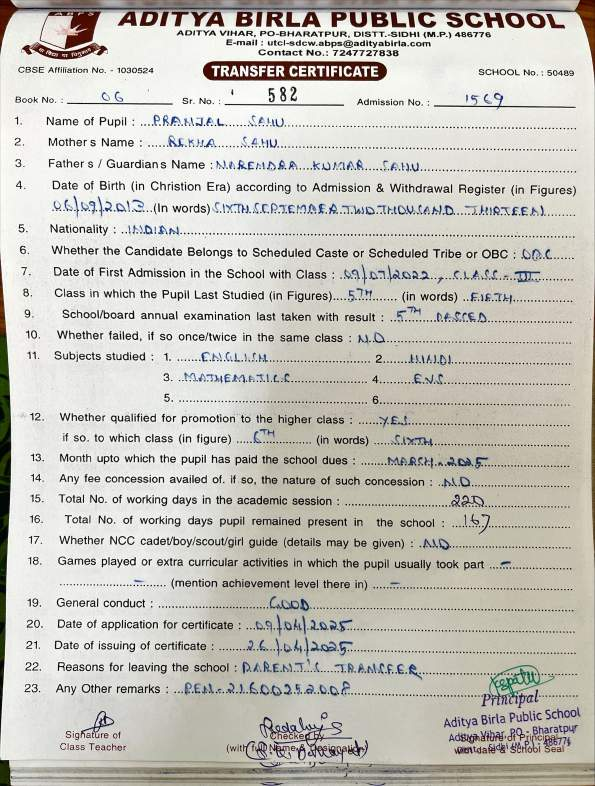 ABPS
ADITYA BIRLA PUBLIC SCHOOL
ADITYA VIHAR, PO-BHARATPUR, DISTT.-SIDHI (M.P.) 486776
E-mail : utcl-sdcw.abps@adityabirla.com
Contact No.: 7247727838
CBSE Affiliation No. - 1030524 TRANSFER CERTIFICATE SCHOOL NO. : 50489
Book No. : 06 Sr. No. : 582 Admission No. : 1569
1. Name of Pupil : PRANJAL SAHU
2. Mother's Name : REKHA SAHU
3. Father's / Guardian's Name : NARENDRA KUMAR SAHU
4. Date of Birth (in Christion Era) according to Admission & Withdrawal Register (in Figures)
06/09/2013 (In words) SIXTH SEPTEMBER TWO THOUSAND THIRTEEN
5. Nationality : INDIAN
6. Whether the Candidate Belongs to Scheduled Caste or Scheduled Tribe or OBC : OBC
7. Date of First Admission in the School with Class : 09/07/2022, CLASS - III
8. Class in which the Pupil Last Studied (in Figures) 5TH (in words) FIFTH
9. School/board annual examination last taken with result : 5TH PASSED
10. Whether failed, if so once/twice in the same class : NO
11. Subjects studied : 1. ENGLISH 2. HINDI
3. MATHEMATICS 4. EVS
5. 6.
12. Whether qualified for promotion to the higher class : YES
if so. to which class (in figure) 6TH (in words) SIXTH
13. Month upto which the pupil has paid the school dues : MARCH - 2025
14. Any fee concession availed of. if so, the nature of such concession : NO
15. Total No. of working days in the academic session : 220
16. Total No. of working days pupil remained present in the school : 167
17. Whether NCC cadet/boy/scout/girl guide (details may be given) : NO
18. Games played or extra curricular activities in which the pupil usually took part –
– (mention achievement level there in) –
19. General conduct : GOOD
20. Date of application for certificate : 09/04/2025
21. Date of issuing of certificate : 26/04/2025
22. Reasons for leaving the school : PARENT'S TRANSFER
23. Any Other remarks : PEN - 21600252008
Principal
Aditya Birla Public School
Aditya Vihar, PO - Bharatpur
Distt.- Sidhi (M.P.) - 486776
Signature of Checked by Signature of Principal
Class Teacher (with full Name & Designation) with date & School Seal